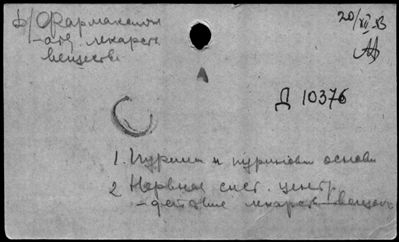 Б/ Фармакология
лекарств
веществ
20/XII 53
А
Д 10376
1. Пурин и пуриновые основ.
2 Нервная сист. центр.
– действие лекарств. веществ